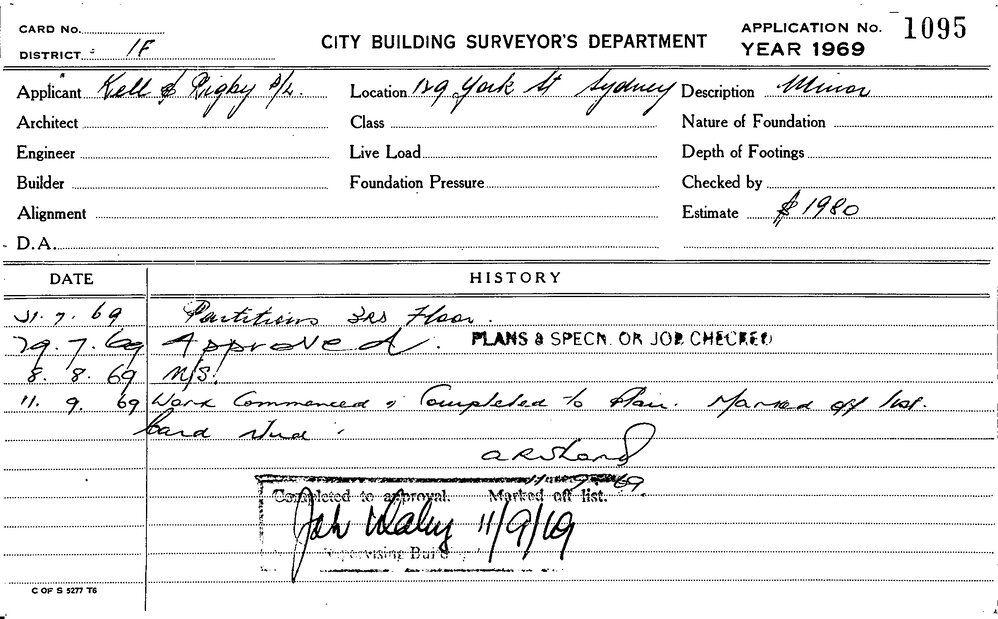 CARD No.
DISTRICT 1F
CITY BUILDING SURVEYOR'S DEPARTMENT
APPLICATION No. 1095
YEAR 1969
Applicant Kell & Rigby P/L. Location 129 York St Sydney Description Minor
Architect Class Nature of Foundation
Engineer Live Load Depth of Footings
Builder Foundation Pressure Checked by
Alignment Estimate $1980
D.A.
DATE HISTORY
31.7.69 Partitions 3rd Floor.
29.7.69 Approved. PLANS & SPECN. OR JOB CHECKED
8.8.69 N/S.
11.9.69 Work Commenced & Completed to Plan. Marked off list.
Card
11.9.69.
Completed to approval. Marked off list.
11/9/69
Supervising Build
C OF S 5277 T6